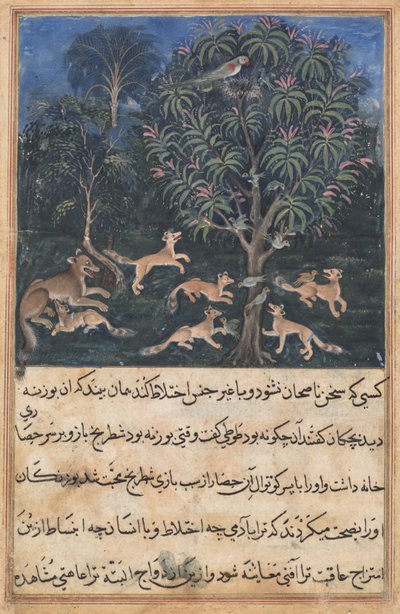 کسی که سخن ناصحان نشنود و با غیر جنس اختلاط کند همان بیند که آن بوزنه
دید بچکان گفتند آن چگونه بود طوطی گفت وقتی بوزنه بود شطرنج باز و بر سر حصار
خانه داشت و او را با پسر کوتوال آن حصار از سبب بازی شطرنج محبت شد بوزنکان
او را نصیحت میکردند که ترا با آدمی چه اختلاط و با انسان چه انبساط ازین
امتزاج عاقبت ترا آفتی معاینه شود و ازین ازدواج البته ترا عاهتی مشاهده